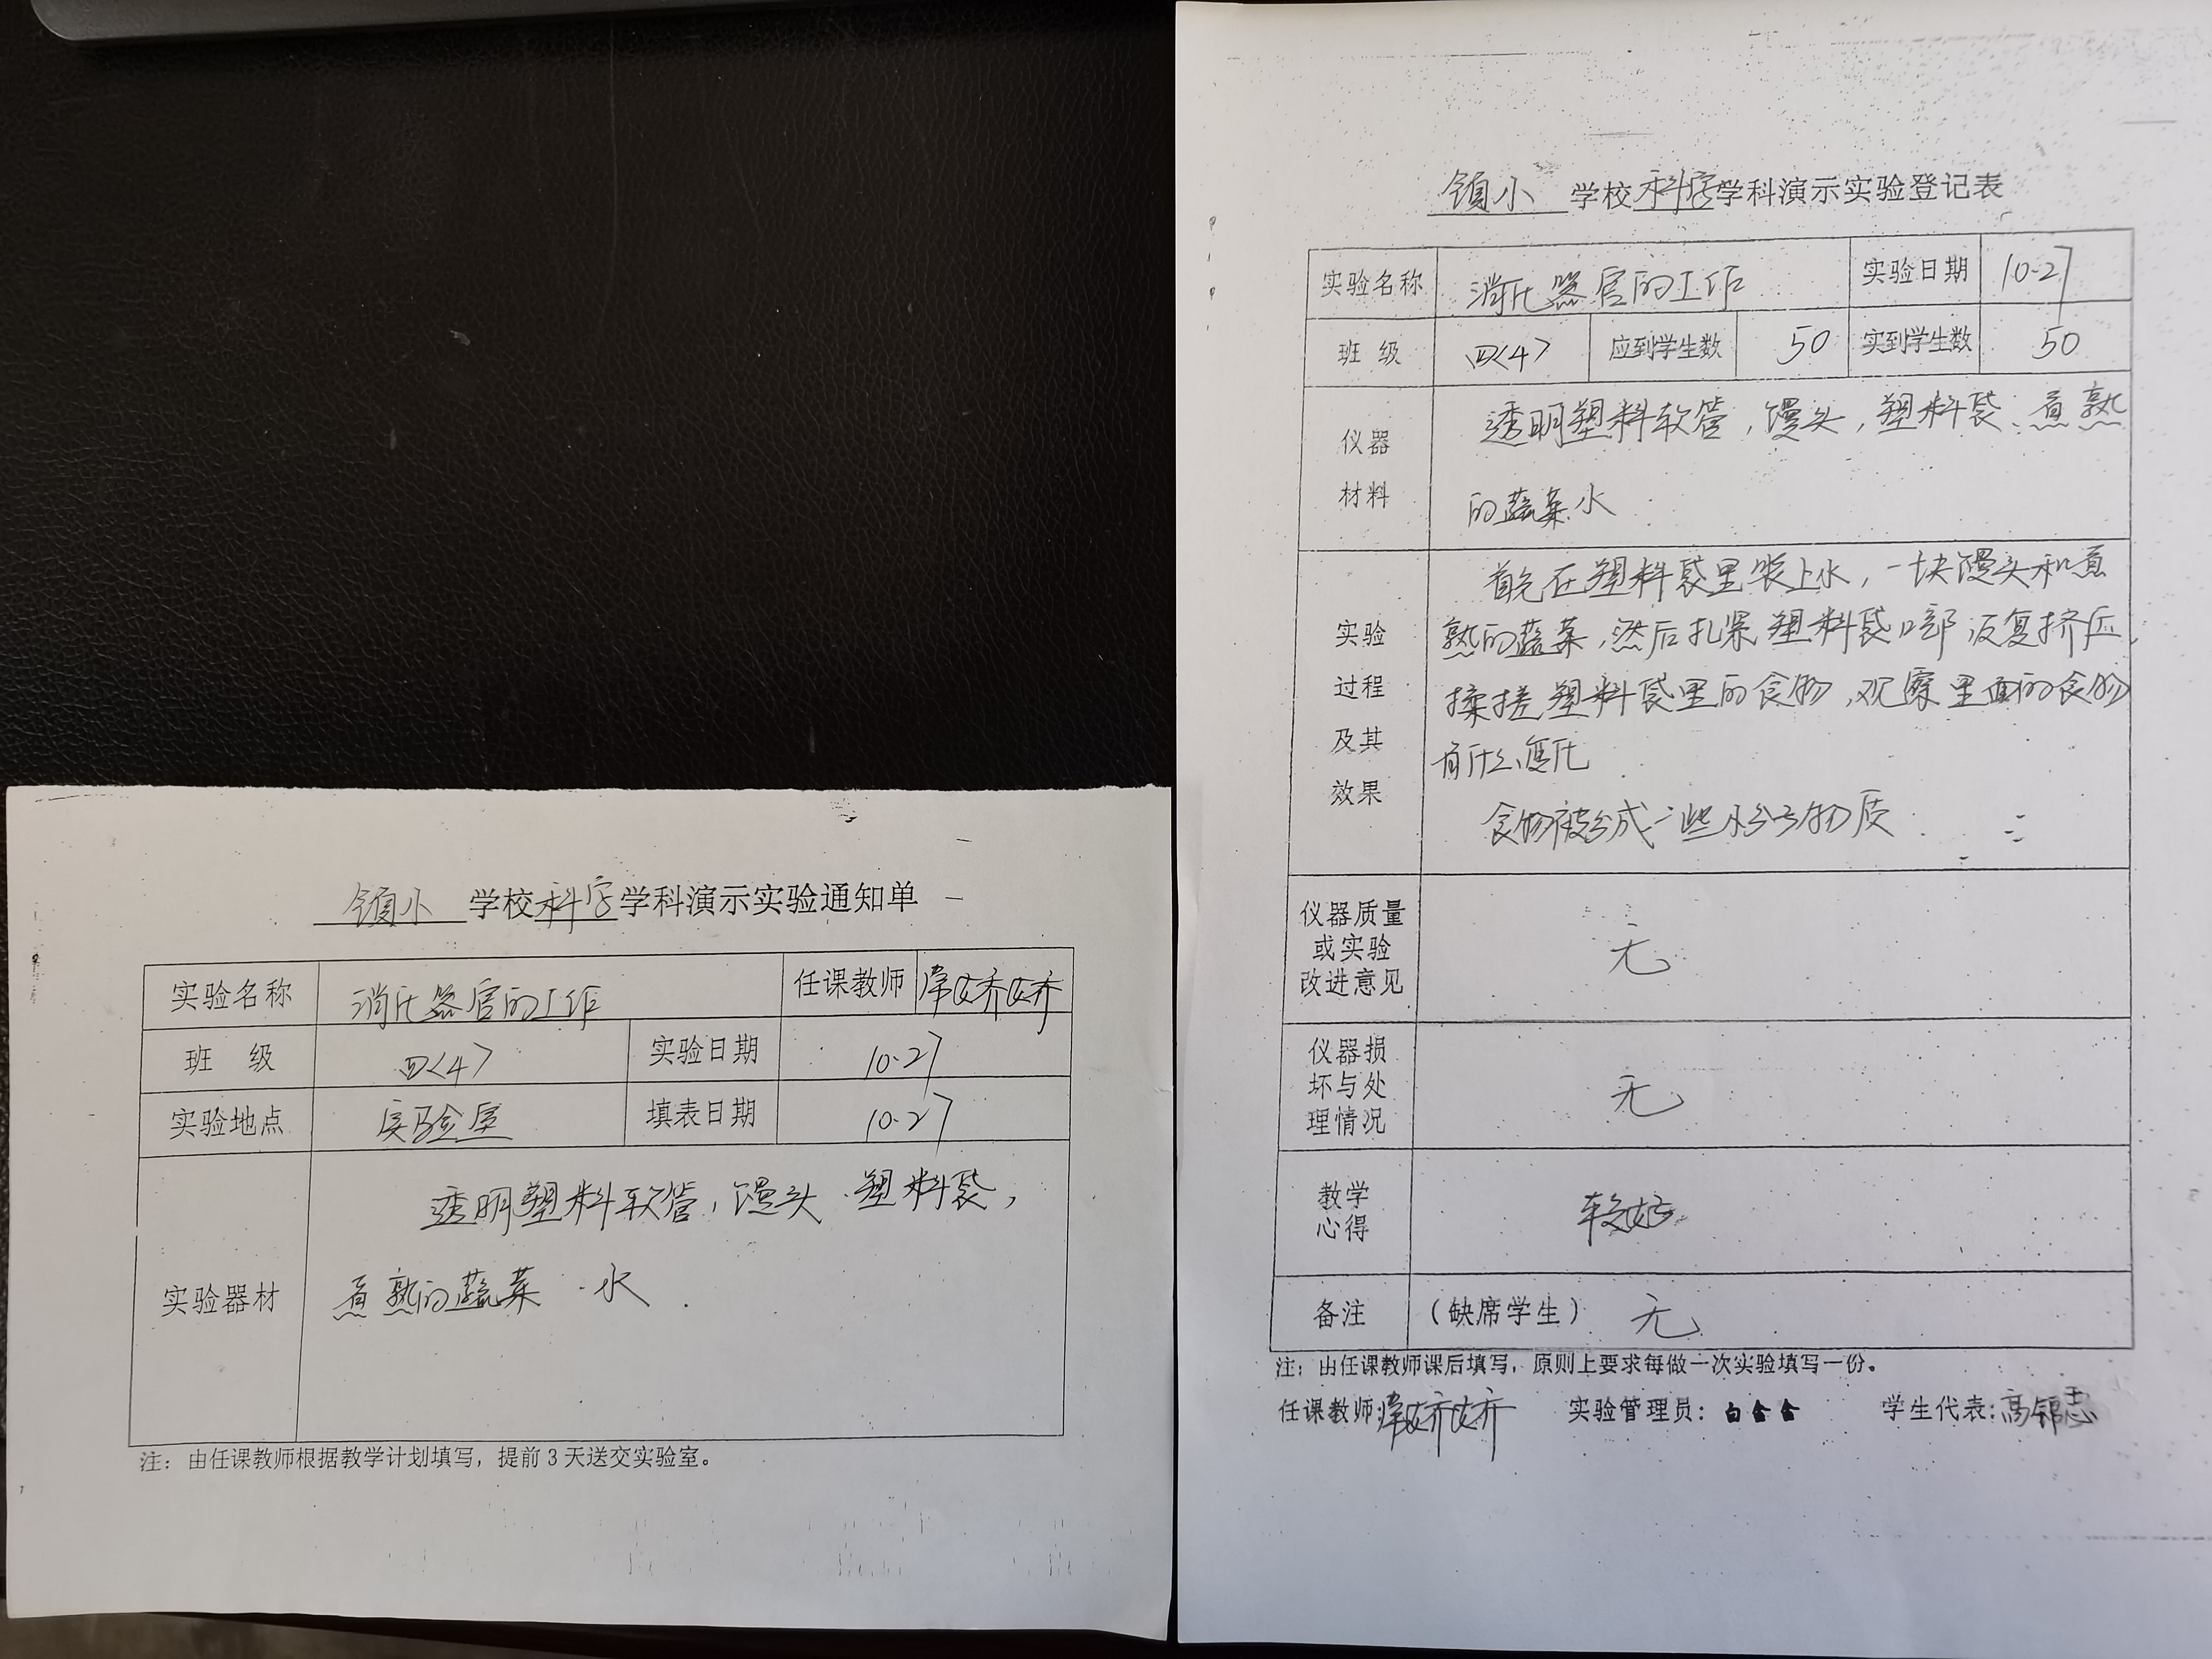 镇小 学校科学学科演示实验通知单
实验名称 消化器官的工作 任课教师 常娇娇
班 级 四<4> 实验日期 10·27
实验地点 实验室 填表日期 10·27
实验器材 透明塑料软管,馒头 塑料袋,
煮熟的蔬菜 水
注：由任课教师根据教学计划填写，提前3天送交实验室。
镇小 学校科学学科演示实验登记表
实验名称 消化器官的工作 实验日期 10·27
班 级 四<4> 应到学生数 50 实到学生数 50
仪器
材料
透明塑料软管,馒头,塑料袋、煮熟
的蔬菜 水
实验
过程
及其
效果
首先在塑料袋里装上水,一块馒头和煮
熟的蔬菜,然后扎紧塑料袋口部 反复挤压,
揉搓塑料袋里的食物,观察里面的食物
有什么变化
食物被分成一些小分子物质
仪器质量
或实验
改进意见
无
仪器损
坏与处
理情况
无
教学
心得
较好
备注 （缺席学生） 无
注：由任课教师课后填写，原则上要求每做一次实验填写一份。
任课教师:常娇娇 实验管理员：白合合 学生代表:高锦志